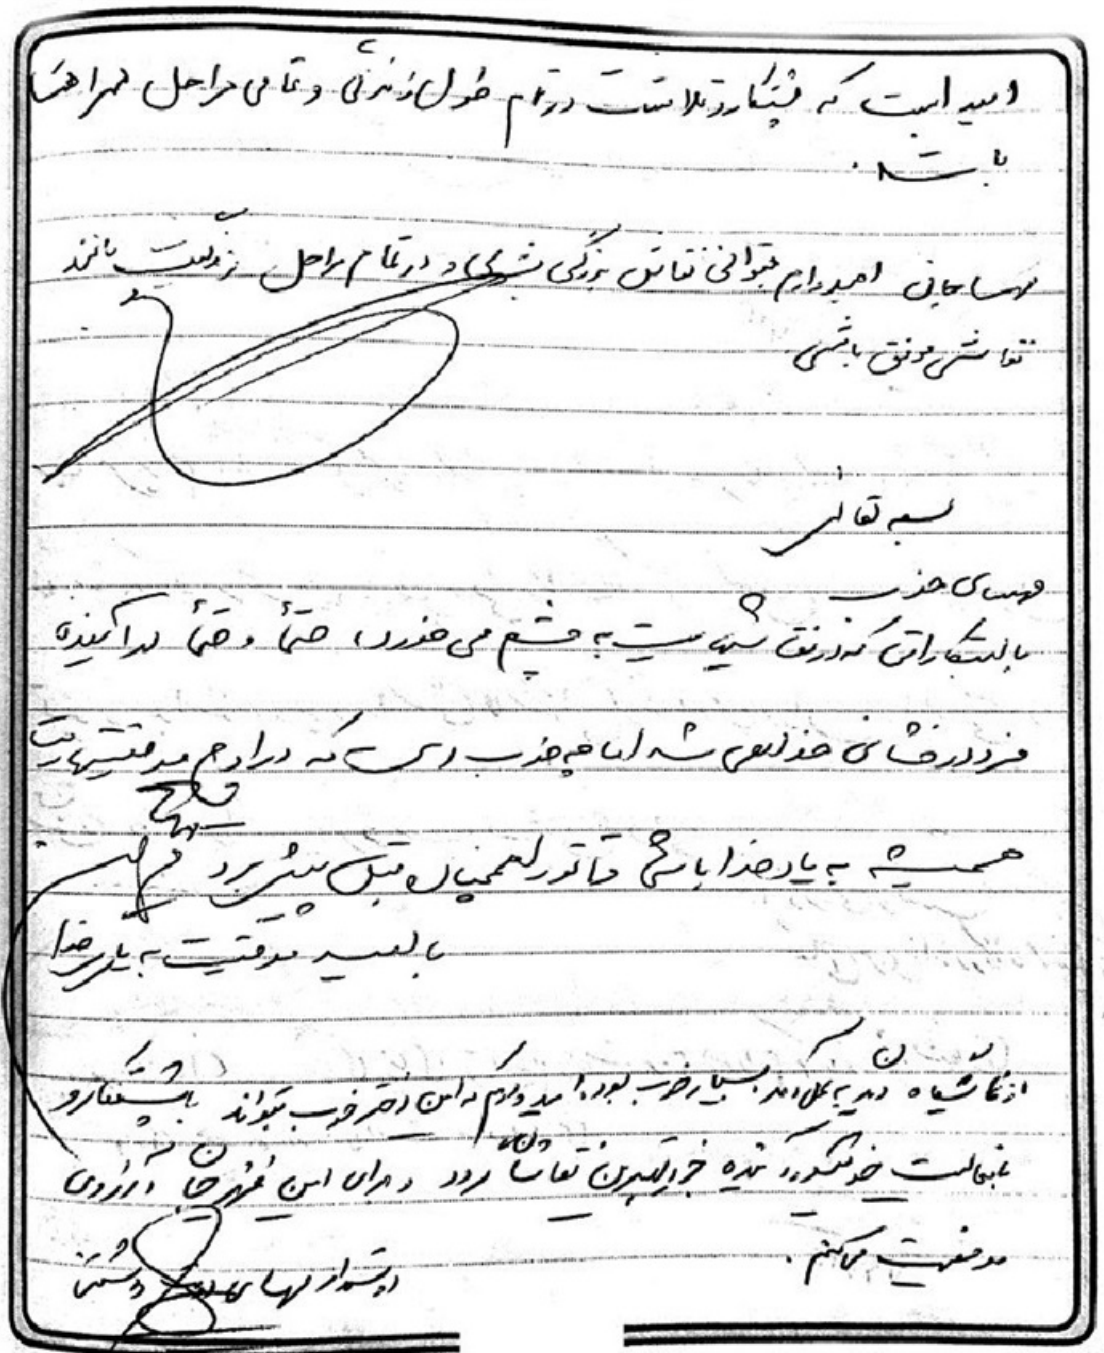 امید است که پشتکار و تلاشت در تمام طول زندگی و تمامی مراحل همراهت
باشد.
مهسا جانی امیدوارم بتوانی نقاش بزرگی بشوی و در تمام مراحل زندگیت مانند
نقاشی موفق باشی
بسمه تعالی
مهسای خوب
با ابتکاراتی که در نقاشی‌هایت به چشم می‌خورد، حتماً و حتماً در آینده
فرد درخشانی خواهی شد اما چه خوب است که در اوج موفقیتهایت
همیشه به یاد خدا باشی تا تو را همچنان به پیش ببرد
با امید موفقیت به یاری خدا
از نمایشگاه دیدن به عمل آمد بسیار خوب بود. امیدوارم که این دختر خوب بتواند با پشتکار و
فعالیت خود در آینده جزو بهترین نقاشان گردد و برای این عزیز جان آرزوی
موفقیت می‌کنم.
دوستدار مهسای